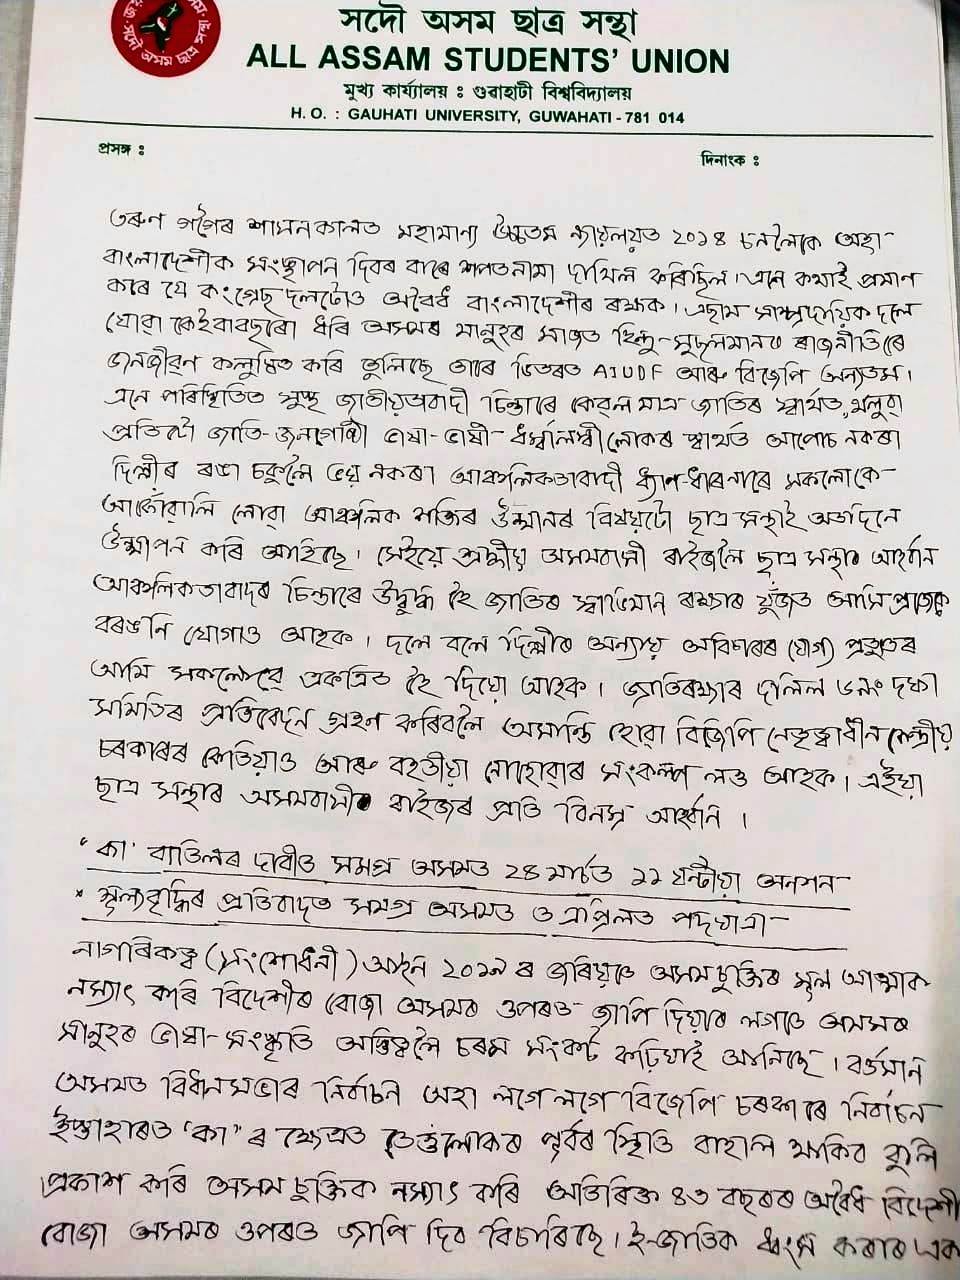 সদৌ অসম ছাত্ৰ সন্থা
সদৌ অসম ছাত্ৰ সন্থা
ALL ASSAM STUDENTS' UNION
মুখ্য কাৰ্য্যালয় : গুৱাহাটী বিশ্ববিদ্যালয়
H. O. : GAUHATI UNIVERSITY, GUWAHATI - 781 014
প্ৰসঙ্গ :
দিনাংক :
তৰুণ গগৈৰ শাসনকালত মহামান্য উচ্চতম ন্যায়লয়ত ২০১৪ চনলৈকে অহা
বাংলাদেশীক সংস্থাপন দিবৰ বাবে শপতনামা দাখিল কৰিছিল। এনে কথাই প্ৰমাণ
কৰে যে কংগ্ৰেছ দলটোও অবৈধ বাংলাদেশীৰ ৰক্ষক। এছাম সাম্প্ৰদায়িক দলে
যোৱা কেইবাবছৰো ধৰি অসমৰ মানুহৰ মাজত হিন্দু-মুছলমানৰ ৰাজনীতিৰে
জনজীৱন কলুষিত কৰি তুলিছে তাৰে ভিতৰত AIUDF আৰু বিজেপি অন্যতম।
এনে পৰিস্থিতিত সুস্থ জাতীয়তাবাদী চিন্তাৰে কেৱল মাত্ৰ জাতিৰ স্বাৰ্থত, থলুৱা
প্ৰতিটো জাতি-জনগোষ্ঠী ভাষা-ভাষী-ধৰ্মাৱলম্বী লোকৰ স্বাৰ্থত আপোচ নকৰা
দিল্লীৰ ৰঙা চকুলৈ ভয় নকৰা আঞ্চলিকতাবাদী ধ্যান-ধাৰনাৰে সকলোকে
আকোঁৱালি লোৱা আঞ্চলিক শক্তিৰ উত্থানৰ বিষয়টো ছাত্ৰ সন্থাই অতদিনে
উত্থাপন কৰি আহিছে। সেইয়ে শ্ৰদ্ধীয় অসমবাসী ৰাইজলৈ ছাত্ৰ সন্থাৰ আহ্বান
আঞ্চলিকতাবাদৰ চিন্তাৰে উদ্বুদ্ধ হৈ জাতিৰ স্বাভিমান ৰক্ষাৰ যুঁজত আমি প্ৰত্যেকে
বৰঙনি যোগাও আহক। দলে বলে দিল্লীৰ অন্যায় অবিচাৰৰ যোগ্য প্ৰত্যুত্তৰ
আমি সকলোৱে একত্ৰিত হৈ দিয়ো আহক। জাতিৰক্ষাৰ দলিল ৬নং দফা
সমিতিৰ প্ৰতিবেদন গ্ৰহণ কৰিবলৈ অমান্তি হোৱা বিজেপি নেতৃত্বাধীন কেন্দ্ৰীয়
চৰকাৰৰ কেতিয়াও আৰু বহতীয়া নোহোৱাৰ সংকল্প লওঁ আহক। এইয়া
ছাত্ৰ সন্থাৰ অসমবাসী ৰাইজৰ প্ৰতি বিনম্ৰ আহ্বান।
'কা' বাতিলৰ দাবীত সমগ্ৰ অসমত ২৪ মাৰ্চত ১১ ঘন্টীয়া অনশন
* মূল্যবৃদ্ধিৰ প্ৰতিবাদত সমগ্ৰ অসমত ৩ এপ্ৰিলত পদযাত্ৰা
নাগৰিকত্ব (সংশোধনী) আইন ২০১৯ ৰ জৰিয়তে অসম চুক্তিৰ মূল আত্মাক
নস্যাৎ কৰি বিদেশীৰ বোজা অসমৰ ওপৰত জাপি দিয়াৰ লগতে অসমৰ
মানুহৰ ভাষা-সংস্কৃতি অস্তিত্বলৈ চৰম সংকট কঢ়িয়াই আনিছে। বৰ্তমান
অসমত বিধানসভাৰ নিৰ্বাচন অহা লগে লগে বিজেপি চৰকাৰে নিৰ্বাচন
ইস্তাহাৰত 'কা'ৰ ক্ষেত্ৰত তেওঁলোকৰ পূৰ্বৰ স্থিতি বাহাল থাকিব বুলি
প্ৰকাশ কৰি অসম চুক্তিক নস্যাৎ কৰি অতিৰিক্ত ৪৩ বছৰৰ অবৈধ বিদেশী
বোজা অসমৰ ওপৰত জাপি দিব বিচাৰিছে। ই-জাতিক ধ্বংস কৰাৰ এক